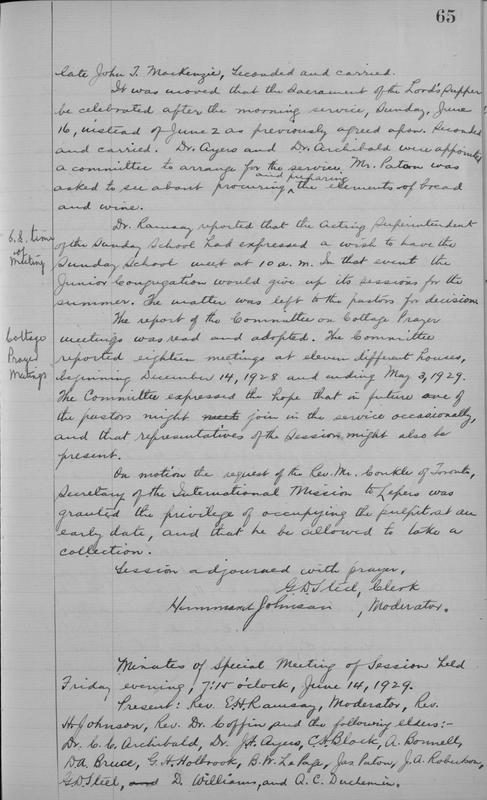 65
late John T. Mackenzie, Seconded and carried.
It was moved that the Sacrament of the Lord's Supper
be celebrated after the morning service, Sunday, June
16, instead of June 2 as previously agreed upon. Seconded
and carried. Dr. Ayers and Dr. Archibald were appointed
a committee to arrange for the service. Mr. Paton was
and preparing
asked to see about procuring the elements of bread
and wine.
S.S. time
of
Meeting
Dr. Ramsay reported that the Acting Superintendent
of the Sunday School had expressed a wish to have the
Sunday School meet at 10 a.m. In that event the
Junior Congregation would give up its sessions for the
summer. The matter was left to the pastors for decision.
Cottage
Prayer
Meetings
The report of the Committee on Cottage Prayer
meetings was read and adopted. The Committee
reported eighteen meetings at eleven different houses,
beginning December 14, 1928 and ending May 3, 1929.
The Committee expressed the hope that in future one of
the pastors might meet join in the service occasionally,
and that representatives of the Session might also be
present.
On motion the request of the Rev. Mr. Conkle of Toronto,
Secretary of the International Mission to Lepers was
granted the privilege of occupying the pulpit at an
early date, and that he be allowed to take a
collection.
Session adjourned with prayer,
G.D. Steel, Clerk
Hammond Johnson, Moderator.
Minutes of Special Meeting of Session held
Friday evening, 7:15 o'clock, June 14, 1929.
Present: Rev. E.H. Ramsay, Moderator, Rev.
H. Johnson, Rev. Dr. Coffin and the following elders:-
Dr. C.C. Archibald, Dr. J.H. Ayers, C.H. Black, A. Bonnell,
D.A. Bruce, G.H. Holbrook, B.W. LaPage, Jas Paton, J.A. Robertson,
G.D. Steel, and D. Williams, and A.C. Duchemin.